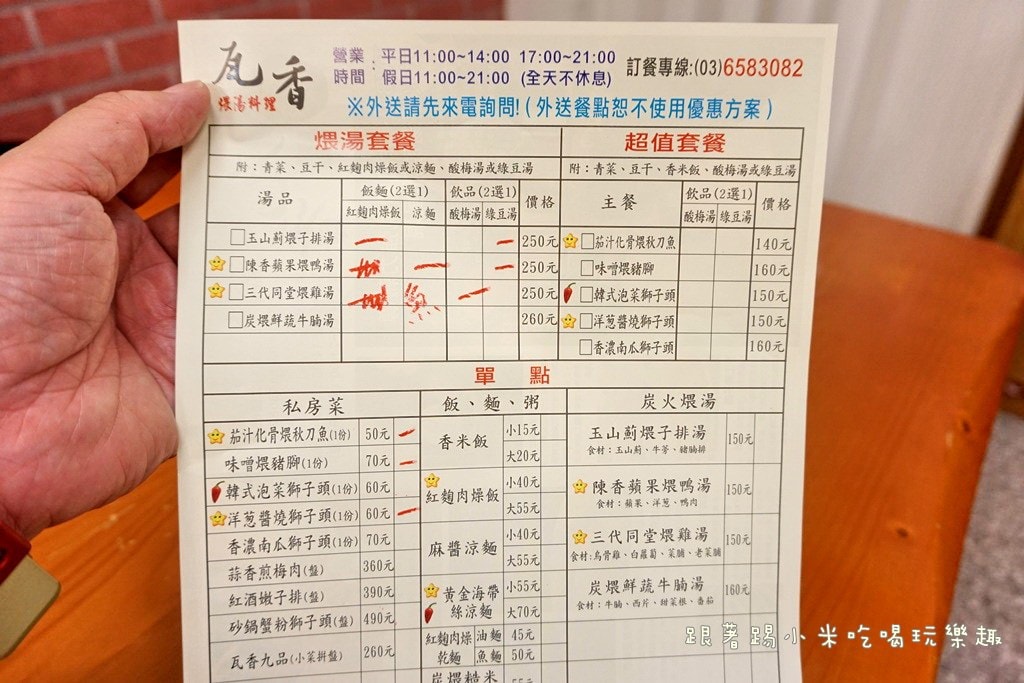 瓦香
煨湯料理
營業時間：平日11:00~14:00 17:00~21:00
假日11:00~21:00 (全天不休息)
訂餐專線:(03)6583082
※外送請先來電詢問!(外送餐點恕不使用優惠方案)
煨湯套餐
附：青菜、豆干、紅麴肉燥飯或涼麵、酸梅湯或綠豆湯
湯品 飯麵(2選1) 飲品(2選1) 價格
紅麴肉燥飯 涼麵 酸梅湯 綠豆湯
□玉山薊煨子排湯 250元
□陳香蘋果煨鴨湯 250元
□三代同堂煨雞湯 250元
□炭煨鮮蔬牛腩湯 260元
超值套餐
附：青菜、豆干、香米飯、酸梅湯或綠豆湯
主餐 飲品(2選1) 價格
酸梅湯 綠豆湯
□茄汁化骨煨秋刀魚 140元
□味噌煨豬腳 160元
□韓式泡菜獅子頭 150元
□洋蔥醬燒獅子頭 150元
□香濃南瓜獅子頭 160元
單點
私房菜
茄汁化骨煨秋刀魚(1份) 50元
味噌煨豬腳(1份) 70元
韓式泡菜獅子頭(1份) 60元
洋蔥醬燒獅子頭(1份) 60元
香濃南瓜獅子頭(1份) 70元
蒜香煎梅肉(盤) 360元
紅酒嫩子排(盤) 390元
砂鍋蟹粉獅子頭(盤) 490元
瓦香九品(小菜拼盤) 260元
飯、麵、粥
香米飯 小15元
大20元
紅麴肉燥飯 小40元
大55元
麻醬涼麵 小40元
大55元
黃金海帶絲涼麵 小55元
大70元
紅麴肉燥乾麵 油麵 45元
魚麵 50元
炭煨糙米
炭火煨湯
玉山薊煨子排湯 150元
食材：玉山薊、牛蒡、豬腩排
陳香蘋果煨鴨湯 150元
食材：蘋果、洋蔥、鴨肉
三代同堂煨雞湯 150元
食材:烏骨雞、白蘿蔔、菜脯、老菜脯
炭煨鮮蔬牛腩湯 160元
食材：牛腩、西芹、甜菜根、番茄
跟著踢小米吃喝玩樂趣